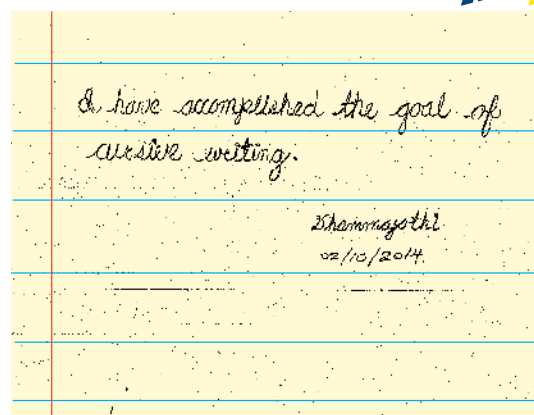 I have accomplished the goal of
cursive writing.
Dhammajothi
02/10/2014.